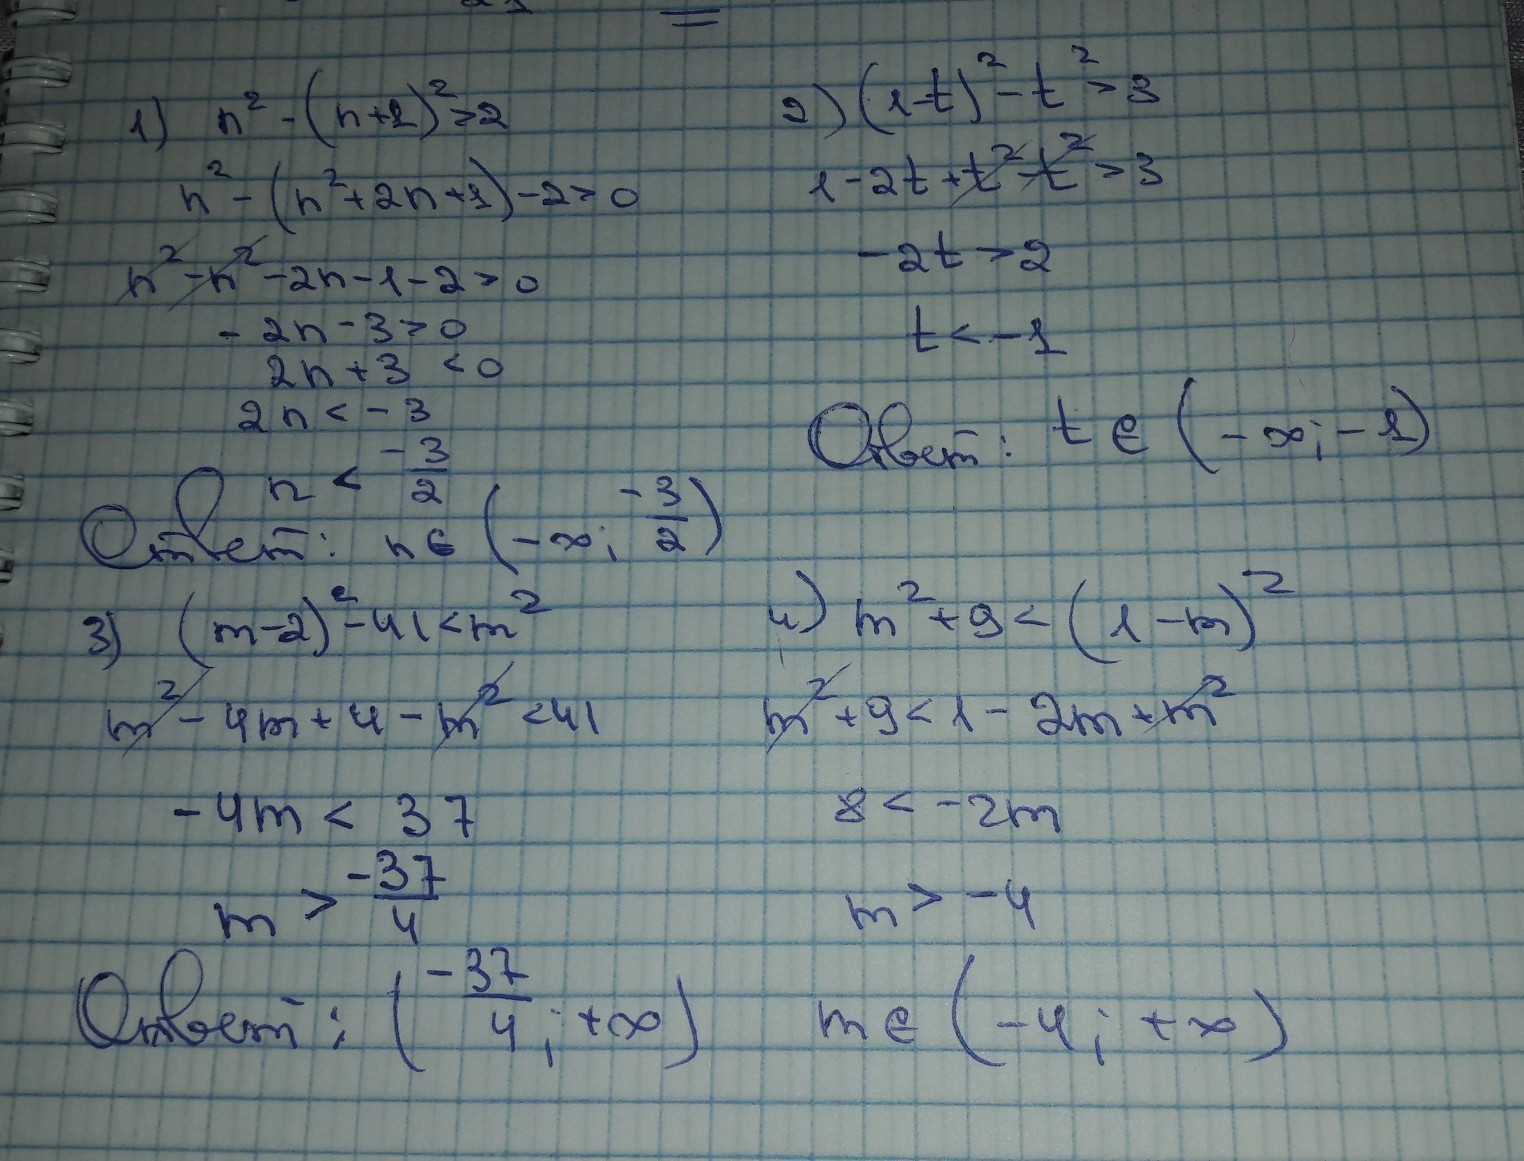 1) n² - (n+1)² > 2
n² - (n² + 2n + 1) - 2 > 0
n² - n² - 2n - 1 - 2 > 0
- 2n - 3 > 0
2n + 3 < 0
2n < - 3
n < -3/2
Ответ: n ∈ (-∞; -3/2)
2) (1-t)² - t² > 3
1 - 2t + t² - t² > 3
-2t > 2
t < -1
Ответ: t ∈ (-∞; -1)
3) (m-2)² - 41 < m²
m² - 4m + 4 - m² < 41
-4m < 37
m > -37/4
Ответ: (-37/4; +∞)
4) m² + 9 < (1 - m)²
m² + 9 < 1 - 2m + m²
8 < -2m
m > -4
m ∈ (-4; +∞)